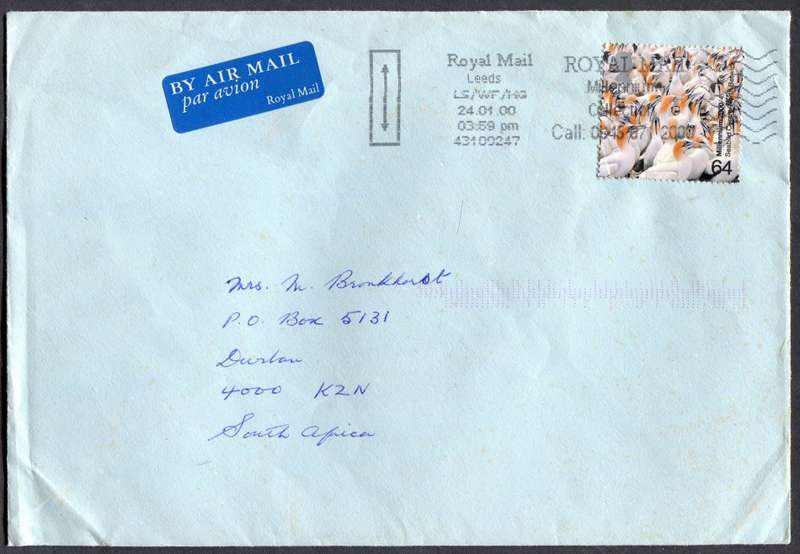 BY AIR MAIL
par avion
Royal Mail
Royal Mail
Leeds
LS/WF/HG
24.01.00
03:59 pm
43100247
ROYAL MAIL
Millennium
Call:
64
Mrs. M. Bronkhorst
P.O. Box 5131
Durban
4000 KZN
South Africa